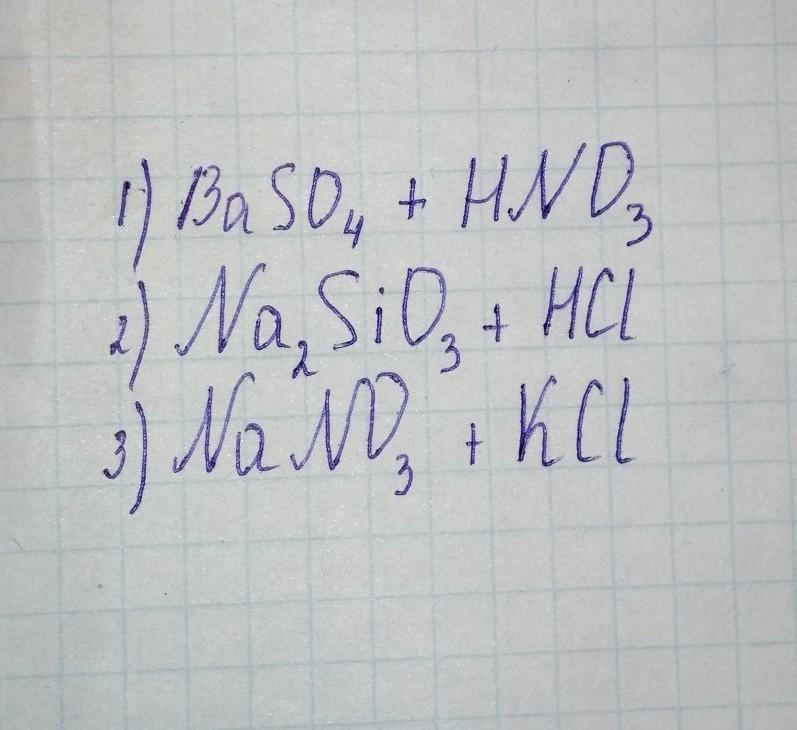 1) BaSO₄ + HNO₃
2) Na₂SiO₃ + HCl
3) NaNO₃ + KCl